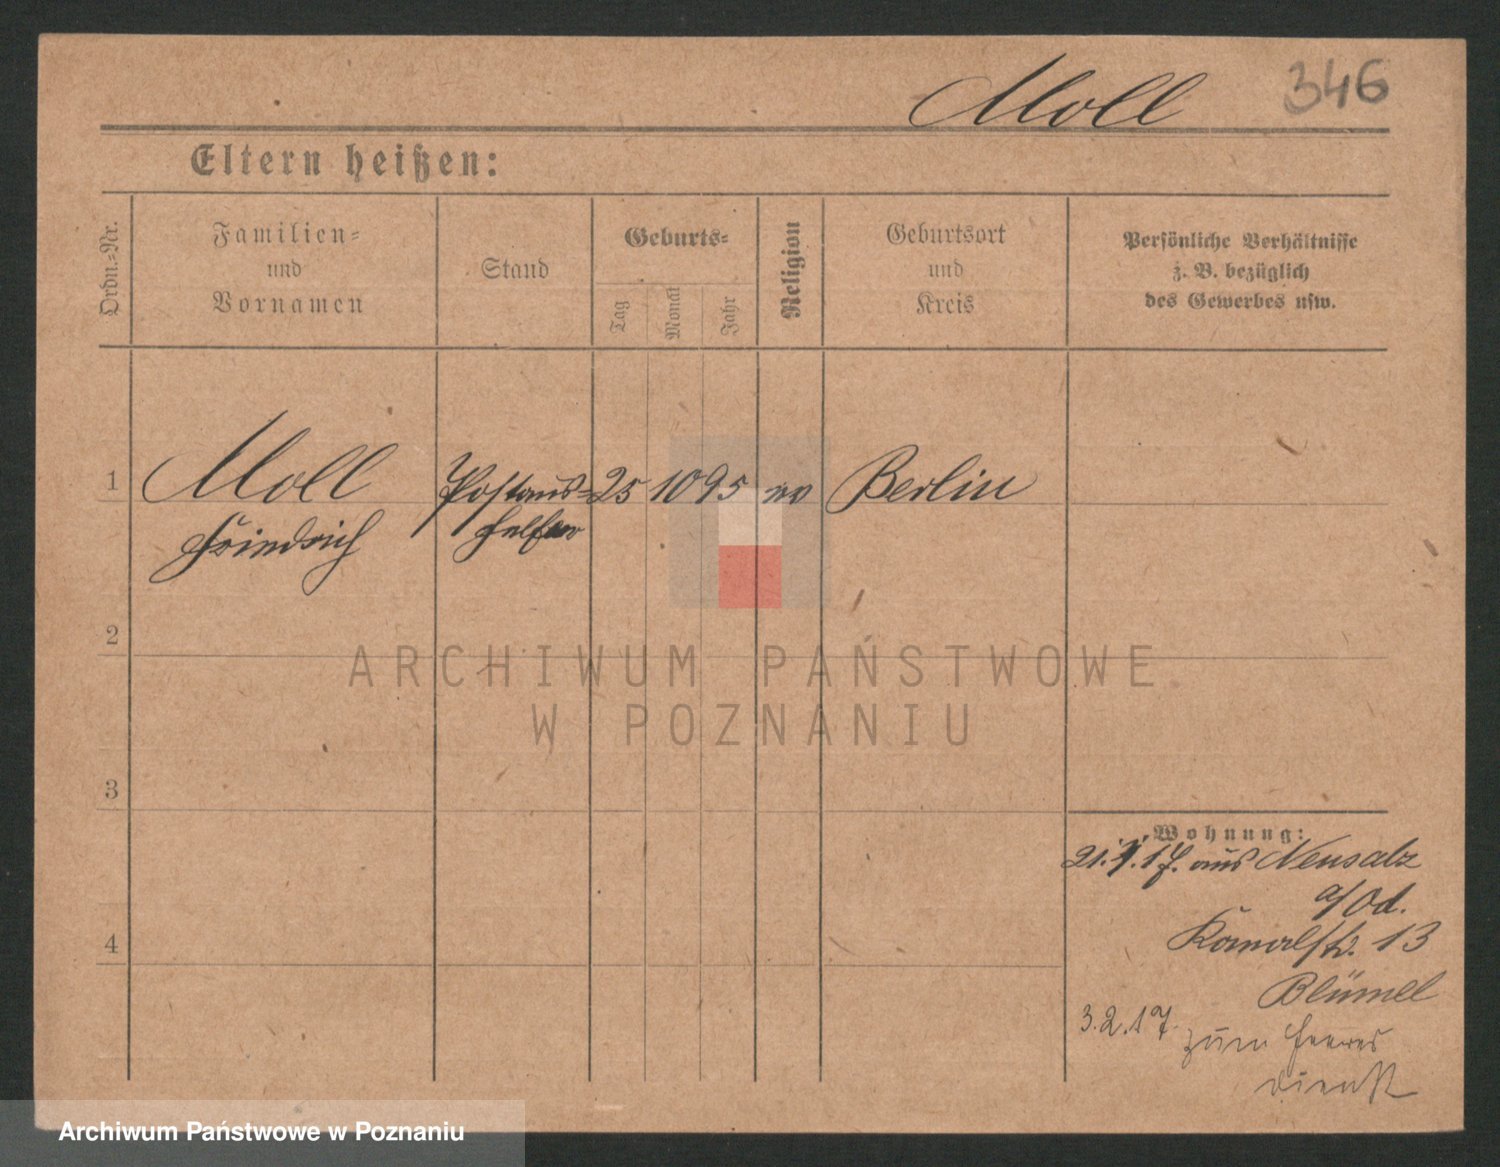 Moll 346
Eltern heißen:
Ordn.-Nr.
Familien-
und
Vornamen
Stand
Geburts-
Tag
Monat
Jahr
Religion
Geburtsort
und
Kreis
Persönliche Verhältnisse
z. B. bezüglich
des Gewerbes usw.
1 Moll Postaus- 25 10 95 ev Berlin
Friedrich helfer
2
3
4
Wohnung:
21.1.17. aus Neusalz
a/Od.
Kanalstr. 13
Blümel
3.2.17 zum Heeres
dienst
ARCHIWUM PAŃSTWOWE
W POZNANIU
Archiwum Państwowe w Poznaniu